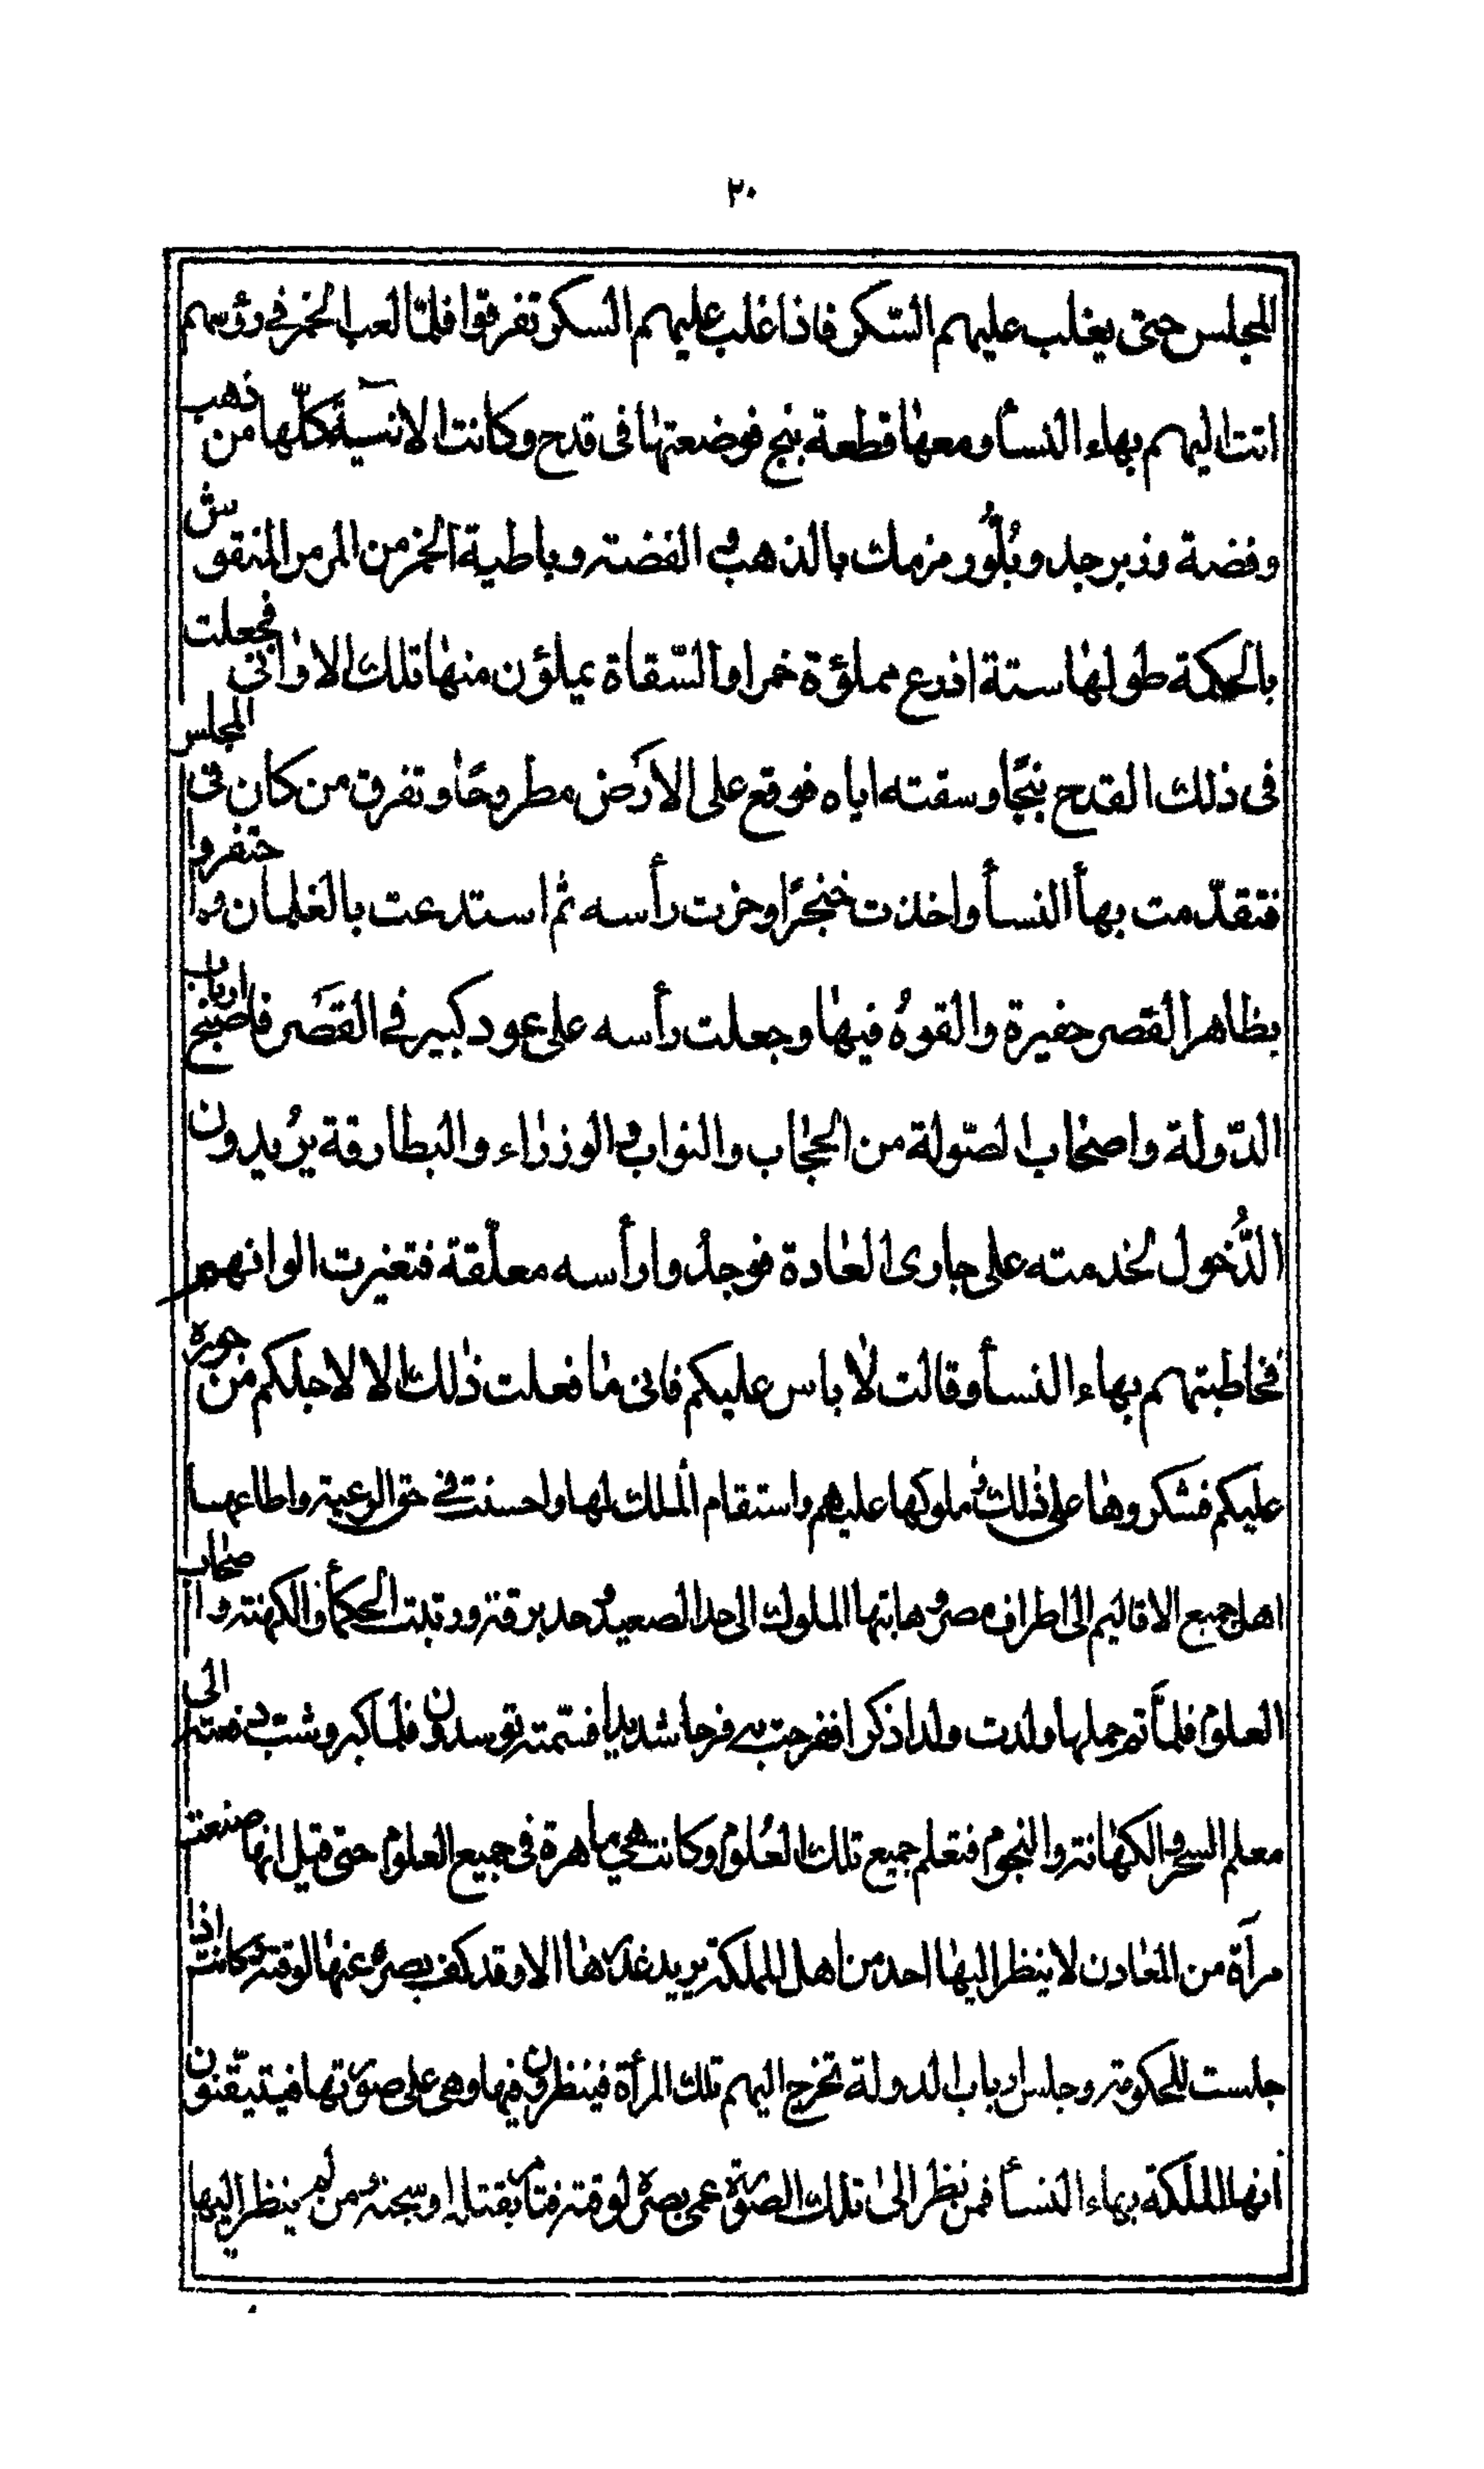 ٢٠
المجلس حتى يغلب عليهم السّكر فاذا غلب عليهم السكر تفرقوا فلمّا لعب الخمر في رؤسهم
اتت اليهم بهاء النسأ ومعها قطعة بنج فوضعتها فى قدح وكانت الانسية كلّها من ذهب
وفضة وزبرجد وبُلُّور مزمك بالذهب والفضته وباطية الخمر من المرمر المنقوش
بالحكمة طولها ستة اذرع مملؤة خمرا والسّقاة يملؤن منها تلك الاوانى فجعلت
فى ذلك القدح بنجًا وسقته اياه فوقع على الارض مطروحًا وتفرق من كان فى المجلس
فتقدّمت بهأ النسأ واخذت خنجرًا وخزت رأسه ثم استدعت بالغلمان وحفروا
بظاهر القصر حفيرة والقوهُ فيها وجعلت رأسه على عمود كبير في القصر فاصبح ارباب
الدّولة واصحاب الصّولة من الحجّاب والنواب والوزراء والبطارقة يريدون
الدُّخول لخدمته على جارى العادة فوجدوا رأسه معلّقة فتغيرت الوانهم
فخاطبتهم بهاء النسأ وقالت لا باس عليكم فانى ما فعلت ذلك الا لاجلكم من جوره
عليكم فشكروها على ذلك وملوكها عليهم واستقام الملك لها واحسنت في حق الرعية واطاعها
اهل جميع الاقاليم الى اطراف مصر وهابتها الملوك الى حد الصعيد وحد برقة ورتبت الحكمأ والكهنة واصحاب
العلوم فلمّا تم حملها ولدت ولدا ذكرا ففرحت به فرحا شديدا فسمّته توسدون فلما كبر وشب دفعته الى
معلم السحر والكهانة والنجوم فتعلم جميع تلك العلوم وكانت هى ماهرة فى جميع العلوم حتى قيل انها صنعت
مرآة من المعادن لا ينظر اليها احد من اهل المملكة يريد غدرها الا وقد كف بصره عنها لوقته وكانت اذا
جلست للحكومة وجلس ارباب الدولة تخرج اليهم تلك المرأة فينظرون فيها وهى على صورتها فيتيقّنون
انها الملكة بهاء النسأ فمن نظر الى تلك الصورة عمى بصره لوقته فتأمر بقتله او سجنه ومن لم ينظر اليها